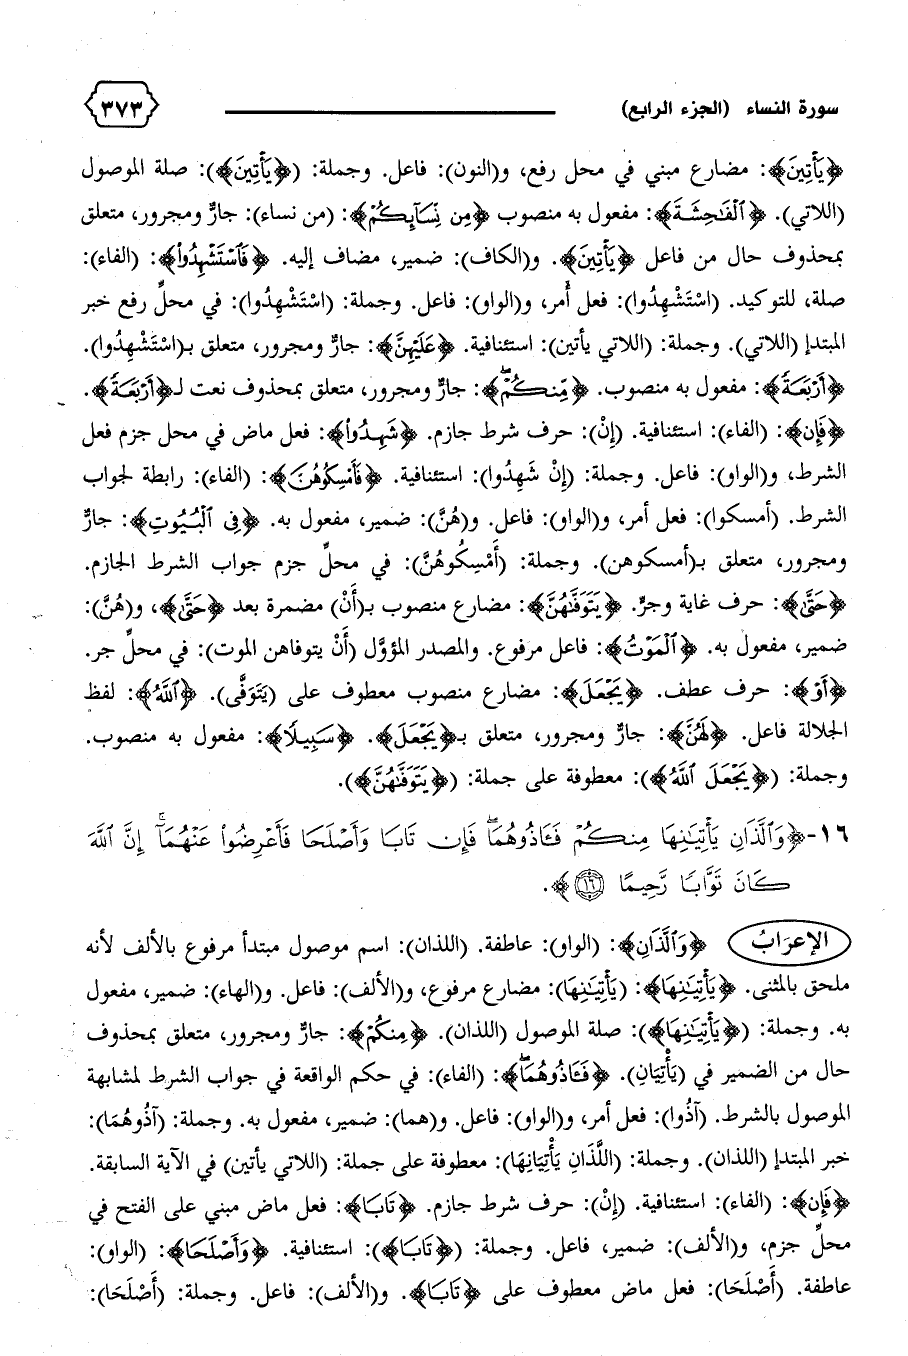 سورة النساء (الجزء الرابع)
٣٧٣
﴿يَأْتِينَ﴾: مضارع مبني في محل رفع، و(النون): فاعل. وجملة: (﴿يَأْتِينَ﴾): صلة الموصول
(اللاتي). ﴿ٱلْفَٰحِشَةَ﴾: مفعول به منصوب ﴿مِن نِّسَآئِكُمْ﴾: (من نساء): جارٌّ ومجرور، متعلق
بمحذوف حال من فاعل ﴿يَأْتِينَ﴾. و(الكاف): ضمير، مضاف إليه. ﴿فَٱسْتَشْهِدُوا۟﴾: (الفاء):
صلة، للتوكيد. (اسْتَشْهِدُوا): فعل أمر، و(الواو): فاعل. وجملة: (اسْتَشْهِدُوا): في محلِّ رفع خبر
المبتدإ (اللاتي). وجملة: (اللاتي يأتين): استئنافية. ﴿عَلَيْهِنَّ﴾: جارٌّ ومجرور، متعلق بـ(اسْتَشْهِدُوا).
﴿أَرْبَعَةً﴾: مفعول به منصوب. ﴿مِّنكُمْ﴾: جارٌّ ومجرور، متعلق بمحذوف نعت لـ﴿أَرْبَعَةً﴾.
﴿فَإِن﴾: (الفاء): استئنافية. (إِنْ): حرف شرط جازم. ﴿شَهِدُوا۟﴾: فعل ماض في محل جزم فعل
الشرط، و(الواو): فاعل. وجملة: (إِنْ شَهِدُوا): استئنافية. ﴿فَأَمْسِكُوهُنَّ﴾: (الفاء): رابطة لجواب
الشرط. (أمسكوا): فعل أمر، و(الواو): فاعل. و(هُنَّ): ضمير، مفعول به. ﴿فِى ٱلْبُيُوتِ﴾: جارٌّ
ومجرور، متعلق بـ(أمسكوهن). وجملة: (أَمْسِكُوهُنَّ): في محلِّ جزم جواب الشرط الجازم.
﴿حَتَّىٰ﴾: حرف غاية وجرٍّ. ﴿يَتَوَفَّىٰهُنَّ﴾: مضارع منصوب بـ(أَنْ) مضمرة بعد ﴿حَتَّىٰ﴾، و(هُنَّ):
ضمير، مفعول به. ﴿ٱلْمَوْتُ﴾: فاعل مرفوع. والمصدر المؤوَّل (أَنْ يتوفاهن الموت): في محلِّ جر.
﴿أَوْ﴾: حرف عطف. ﴿يَجْعَلَ﴾: مضارع منصوب معطوف على (يَتَوَفَّى). ﴿ٱللَّهُ﴾: لفظ
الجلالة فاعل. ﴿لَهُنَّ﴾: جارٌّ ومجرور، متعلق بـ﴿يَجْعَلَ﴾. ﴿سَبِيلًا﴾: مفعول به منصوب.
وجملة: (﴿يَجْعَلَ ٱللَّهُ﴾): معطوفة على جملة: (﴿يَتَوَفَّىٰهُنَّ﴾).
١٦-﴿وَٱلَّذَانِ يَأْتِيَٰنِهَا مِنكُمْ فَـَٔاذُوهُمَا ۖ فَإِن تَابَا وَأَصْلَحَا فَأَعْرِضُوا۟ عَنْهُمَآ ۗ إِنَّ ٱللَّهَ
كَانَ تَوَّابًا رَّحِيمًا ١٦﴾.
الإعرَابُ ﴿وَٱلَّذَانِ﴾: (الواو): عاطفة. (اللذان): اسم موصول مبتدأ مرفوع بالألف لأنه
ملحق بالمثنى. ﴿يَأْتِيَٰنِهَا﴾: (يَأْتِيَٰنِهَا): مضارع مرفوع، و(الألف): فاعل. و(الهاء): ضمير، مفعول
به. وجملة: (﴿يَأْتِيَٰنِهَا﴾): صلة الموصول (اللذان). ﴿مِنكُمْ﴾: جارٌّ ومجرور، متعلق بمحذوف
حال من الضمير في (يَأْتِيَان). ﴿فَـَٔاذُوهُمَا ۖ﴾: (الفاء): في حكم الواقعة في جواب الشرط لمشابهة
الموصول بالشرط. (آذُوا): فعل أمر، و(الواو): فاعل. و(هما): ضمير، مفعول به. وجملة: (آذُوهُمَا):
خبر المبتدإ (اللذان). وجملة: (اللَّذَانِ يَأْتِيَانِهَا): معطوفة على جملة: (اللاتي يأتين) في الآية السابقة.
﴿فَإِن﴾: (الفاء): استئنافية. (إِنْ): حرف شرط جازم. ﴿تَابَا﴾: فعل ماض مبني على الفتح في
محلِّ جزم، و(الألف): ضمير، فاعل. وجملة: (﴿تَابَا﴾): استئنافية. ﴿وَأَصْلَحَا﴾: (الواو):
عاطفة. (أَصْلَحَا): فعل ماض معطوف على ﴿تَابَا﴾. و(الألف): فاعل. وجملة: (أَصْلَحَا):